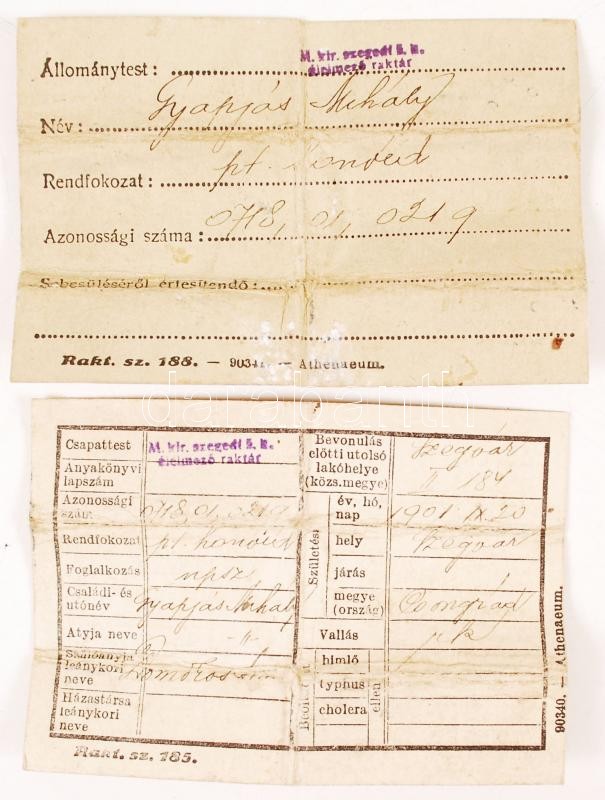 M. kir. szegedi 5. h.
Állománytest: élelmező raktár
Név: Gyapjás Mihály
Rendfokozat: pt. honvéd
Azonossági száma: 0718, 01, 0219
Sebesüléséről értesítendő:
Rakt. sz. 188. — 90341. — Athenaeum.
darabanth
Csapattest M. kir. szegedi 5. h.
élelmező raktár
Anyakönyvi
lapszám
Azonossági
szám 0718, 01, 0219
Rendfokozat pt. honvéd
Foglalkozás npsz
Családi- és
utónév Gyapjás Mihály
Atyja neve
Szülőanyja
leánykori
neve
Házastársa
leánykori
neve
Bevonulás
előtti utolsó
lakóhelye
(közs. megye)
Szegvár
II 184
Születési
év, hó,
nap 1901 IX. 20
hely Szegvár
járás
megye
(ország) Csongrád
Vallás rk
himlő
typhus
cholera
ellen
Rakt. sz. 185.
90340. — Athenaeum.